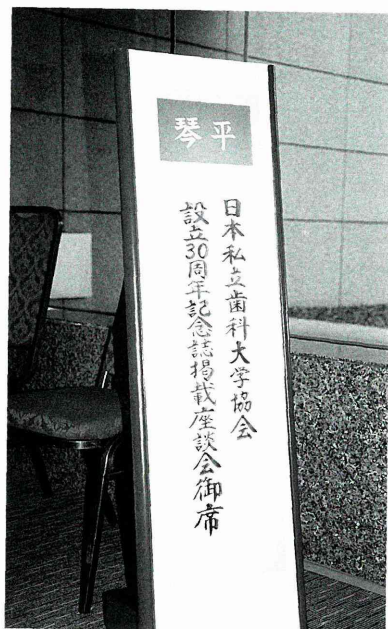 琴平
日本私立歯科大学協会
設立30周年記念誌掲載座談会御席